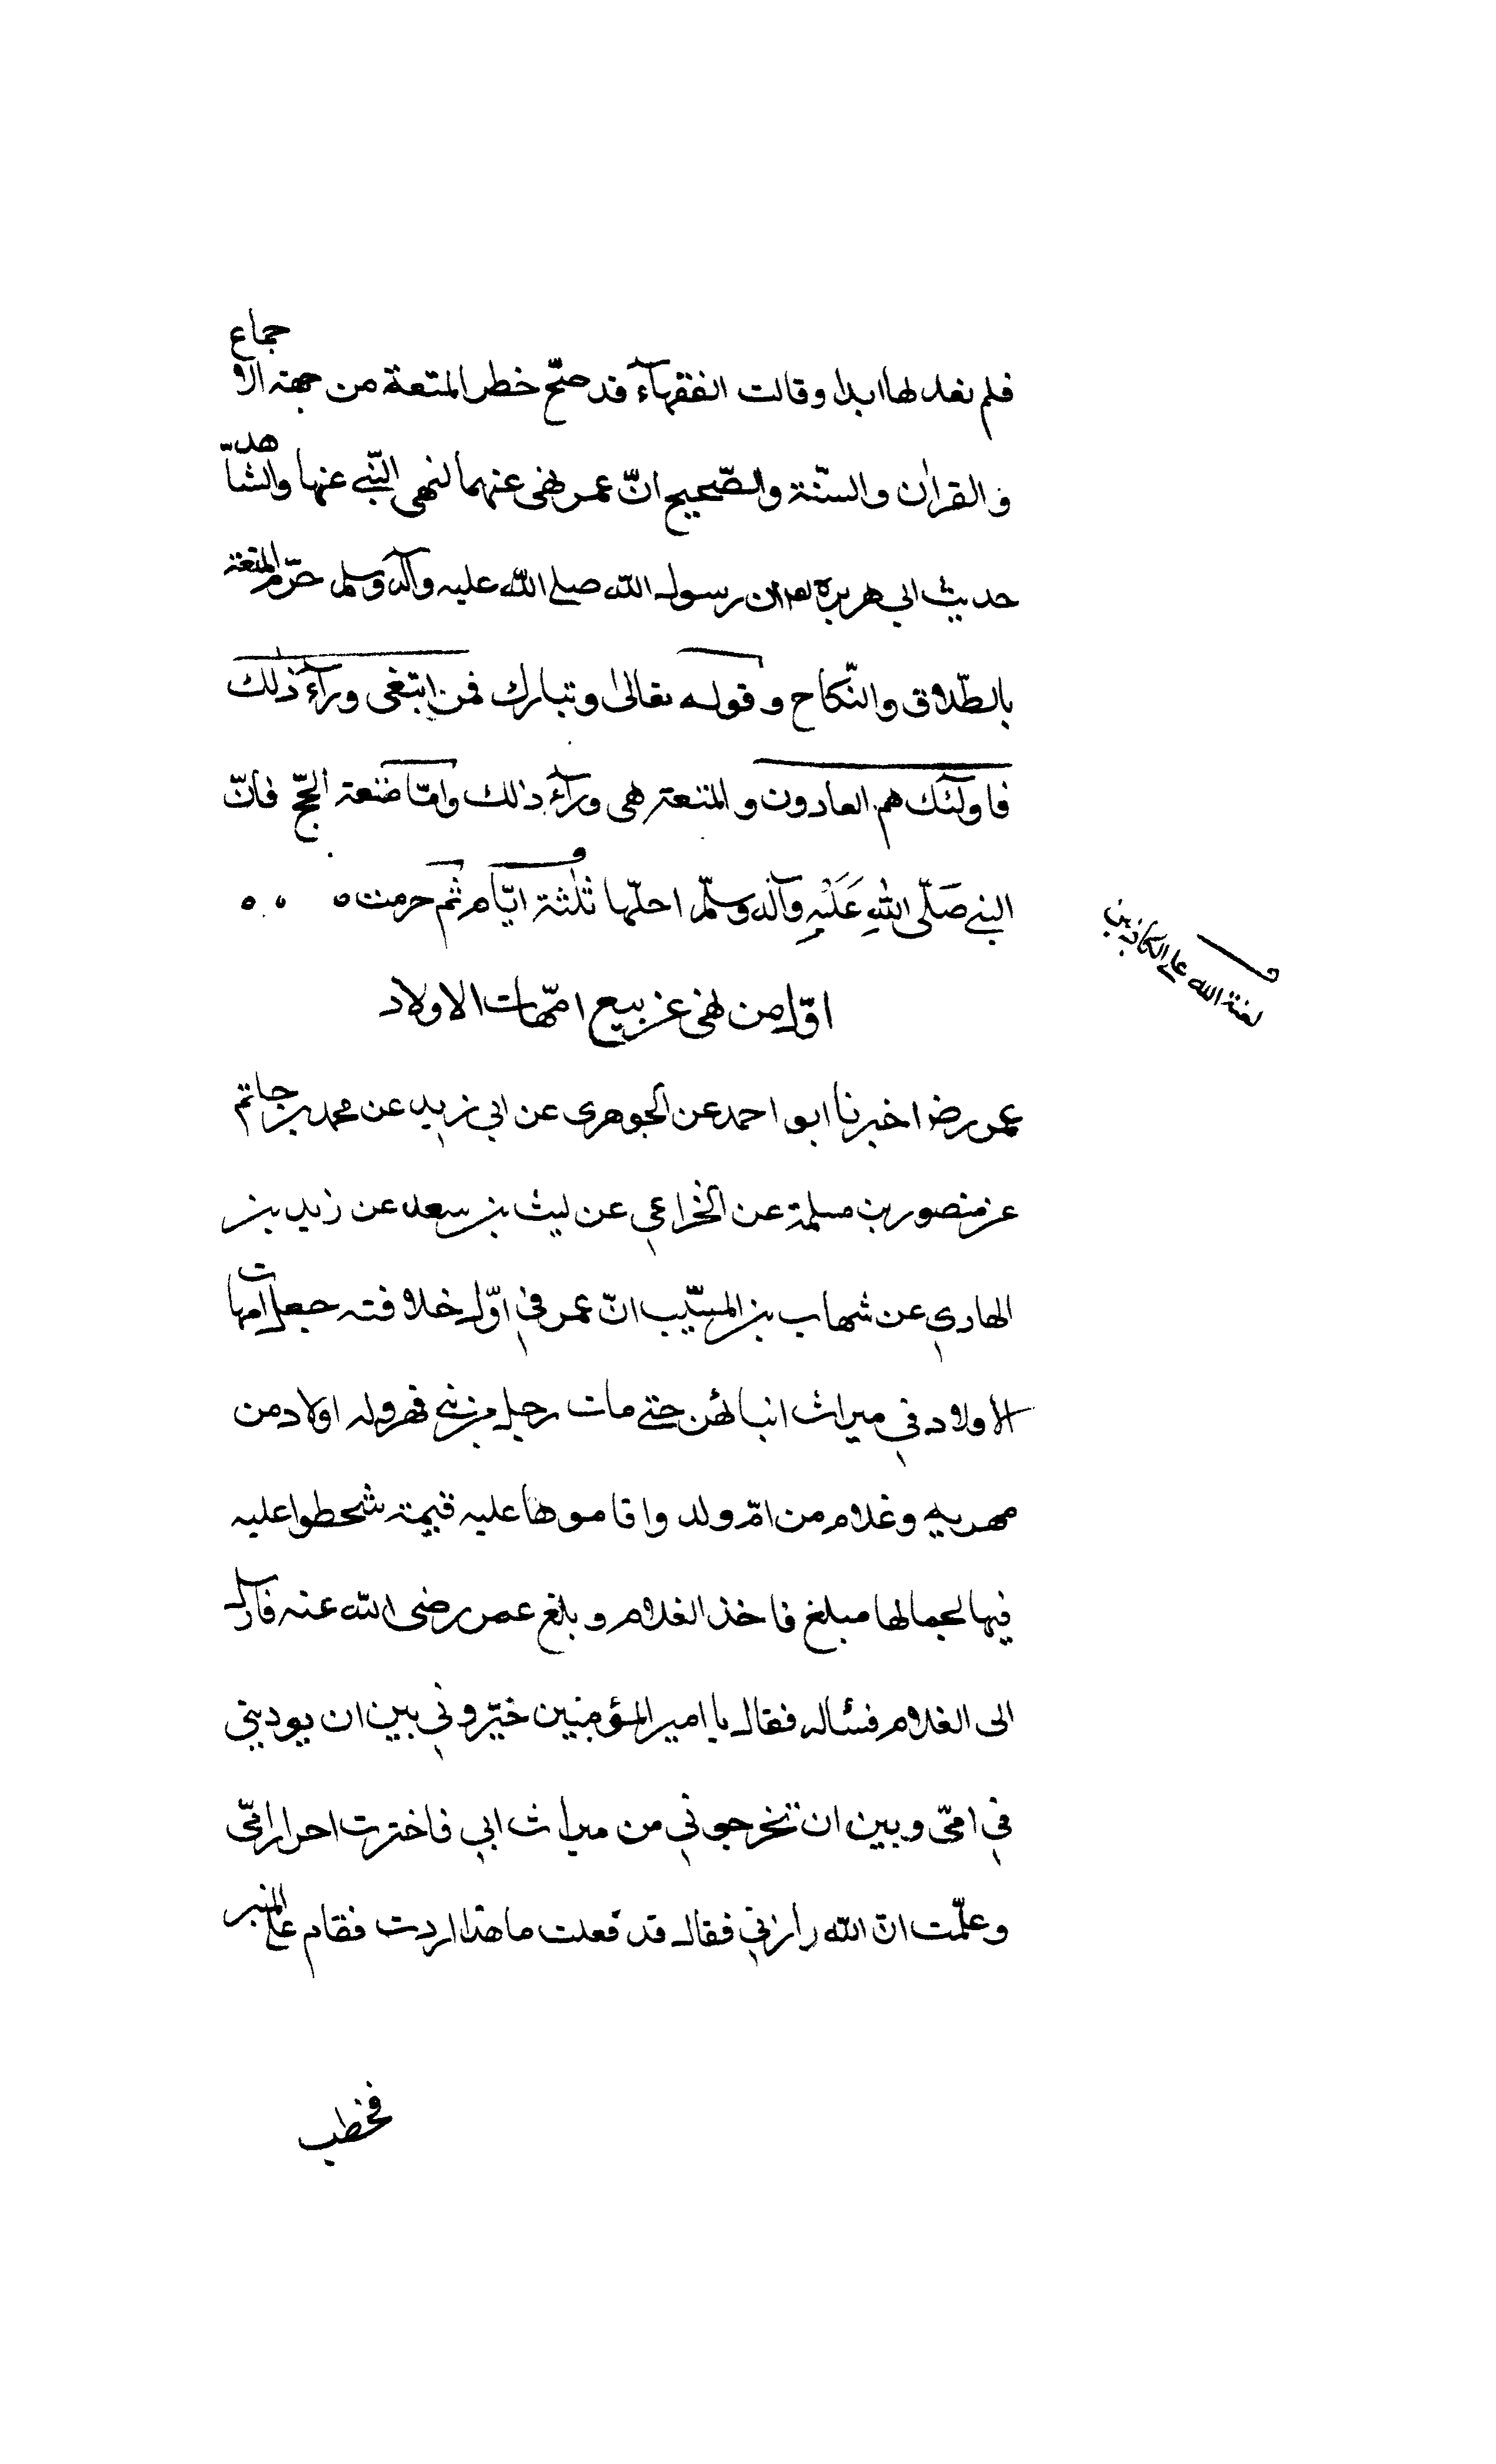 فلم نعد لها ابدا وقالت الفقهآء قد صحّ خطر المتعة من جهة الاجماع
و القران والسنّة والصّحيح انّ عمر نهى عنهما لنهى النّبي عنها والشّاهد
حديث ابي هريره ان رسول الله صلى الله عليه وآله وسلم حرّم المتعة
بالطّلاق والنّكاح و قوله تعالى وتبارك فمن ابتغى ورآء ذلك
فاولئك هم العادون و المتعة هي ورآء ذلك وامّا متعة الحجّ فانّ
النبي صَلّى اللهِ عَلَيْهِ وآله وسلّم احلّها ثلثة ايّام ثم حرمت
لعنة الله على الكاذبين
اوّل من نهى عن بيع امّهات الاولاد
عمر رض اخبرنا ابو احمد عن الجوهرى عن ابي زيد عن محمد بن حاتم
عن منصور بن مسلمة عن الخزاعي عن ليث بن سعد عن زيد بن
الهادي عن شهاب بن المسيّب انّ عمر في اوّل خلافته جعل امهات
الاولاد في ميراث ابنائهن حتى مات رجل من بني فهر وله اولاد من
مهريه وغلام من امّ ولد واقاموها عليه قيمة شحطوا عليه
فيها لجمالها مبلغ فاخذ الغلام وبلغ عمر رضى الله عنه فارسل
الى الغلام فسئاله فقال يا امير المؤمنين خيّروني بين ان يوديني
في امّى وبين ان تخرجوني من ميراث ابي فاخترت احرار امّى
وعلّمت انّ الله رازني فقال قد فعلت ما هذا اردت فقام على المنبر
فخطب